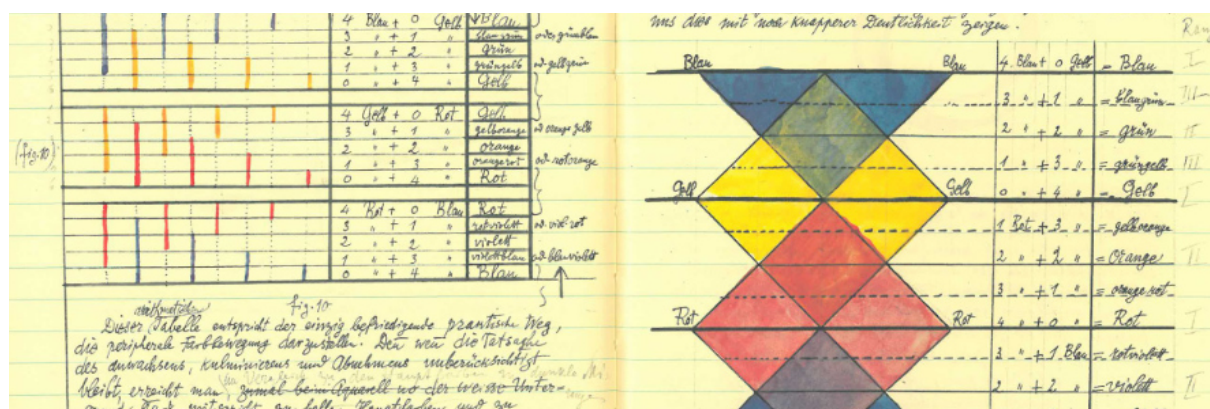 4 Blau + 0 Gelb Blau
3 " + 1 " blaugrün od grünblau
2 " + 2 " grün
1 " + 3 " grüngelb od gelbgrün
0 " + 4 " Gelb
4 Gelb + 0 Rot Gelb
3 " + 1 " gelborange od orange gelb
(fig. 10) 2 " + 2 " orange
1 " + 3 " orangerot od. rotorange
0 " + 4 " Rot
4 Rot + 0 Blau Rot
3 " + 1 " rotviolett od. viol. rot
2 " + 2 " violett
1 " + 3 " violettblau od. blauviolett
0 " + 4 " Blau
fig. 10
Dieser Tabelle entspricht der einzig befriedigende praktische Weg,
die peripherale Farbbewegung darzustellen. Den wen die Tatsache
des anwachsens, kulminierens und Abnehmens unberücksichtigt
bleibt, erreicht man, zumal beim Aquarell wo der weisse Unter-
uns dies mit noch knapperer Deutlichkeit zeigen.
Blau Blau 4 Blau + 0 Gelb = Blau I
3 " + 1 " = blaugrün III
2 " + 2 " = grün II
1 " + 3 " = grüngelb III
Gelb Gelb 0 " + 4 " = Gelb I
1 Rot + 3 " = gelborange
2 " + 2 " = Orange II
3 " + 1 " = orange rot
Rot Rot 4 " + 0 " = Rot I
3 " + 1 Blau = rotviolett
2 " + 2 " = violett II